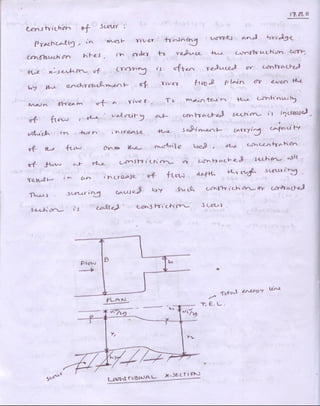 17.12.11
Constriction of Scour :
Practically, in most river training works and bridge
construction sites, in order to reduce the construction cost,
the x-section of crossing is often reduced or contracted
by the encroachment of river flood plain or even the
main stream of a river. To maintain the continuity
of flow, the velocity at contracted section is increased,
which in turn increase the sediment carrying capacity
of the flow. On the mobile bed, the concentration
of flow at the constriction or contracted section will
result in an increase of flow depth through scouring.
Thus scouring caused by such constriction or contracted
section is called constriction scour.
Flow
B
b
PLAN
Total energy line
T.E.L.
Scour
LONGITUDINAL X-SECTION